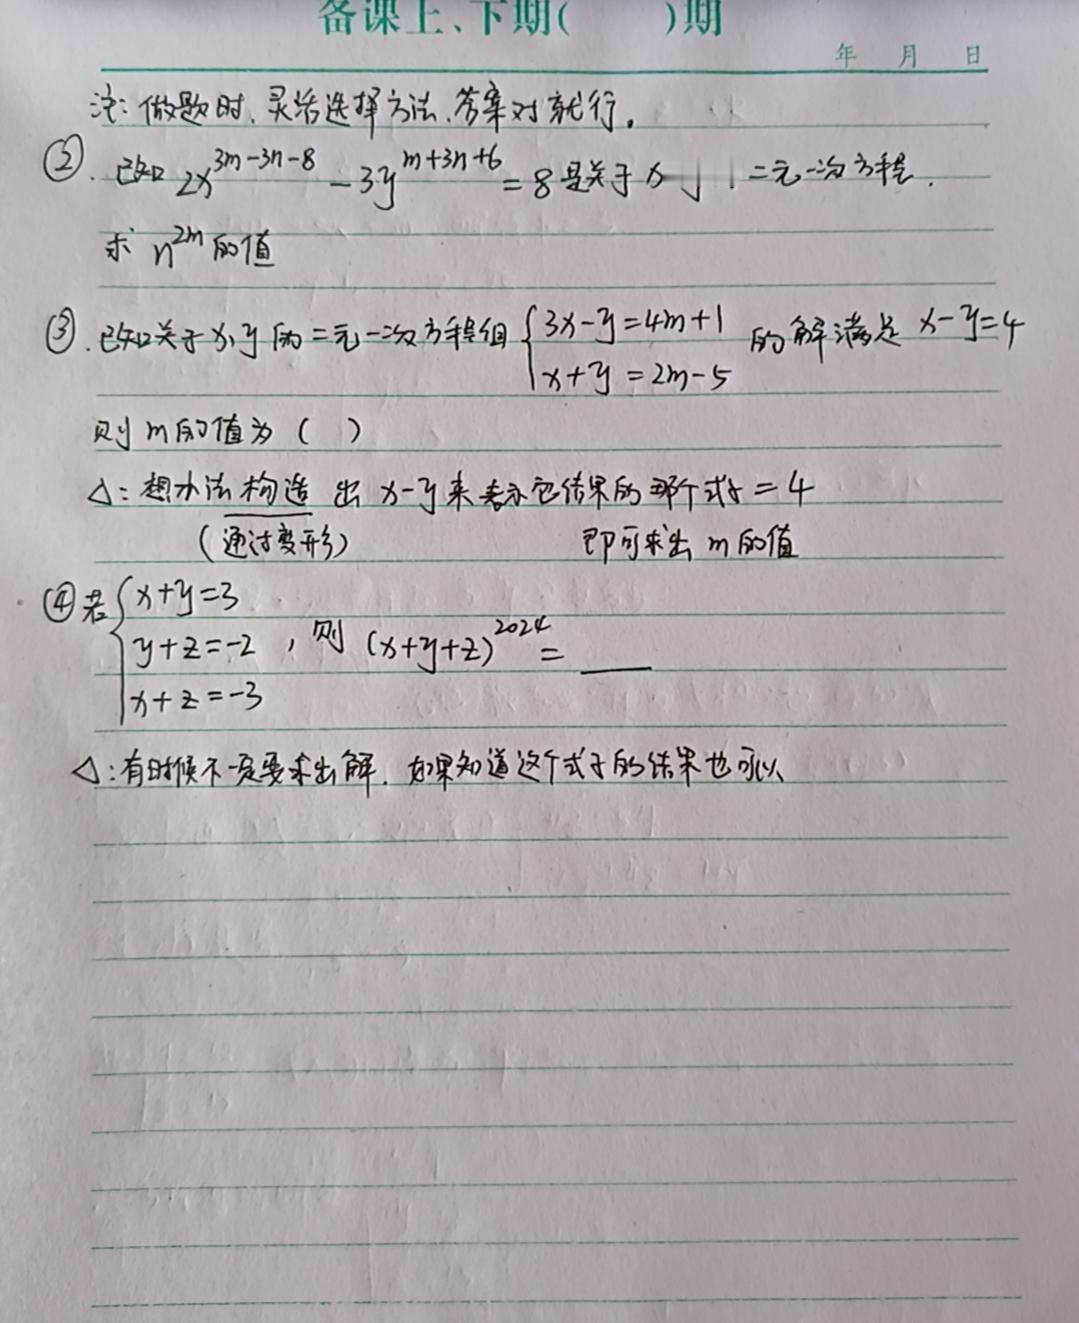 备课上、下期(　　)期
年　月　日
注:做题时、灵活选择方法、答案对就行。
②.已知 2x^{3m-3n-8} - 3y^{m+3n+6} = 8 是关于x 二元一次方程.
求 n^{2m} 的值
③.已知关于x、y的二元一次方程组 { 3x-y=4m+1 的解满足 x-y=4
x+y=2m-5
则m的值为 ( )
△:想办法构造出 x-y来表示它结果的那个式子=4
(通过变形) 即可求出 m的值
④若 { x+y=3
y+z=-2 , 则 (x+y+z)^{2024} = ___
x+z=-3
△:有时候不一定要求出解. 如果知道这个式子的结果也可以